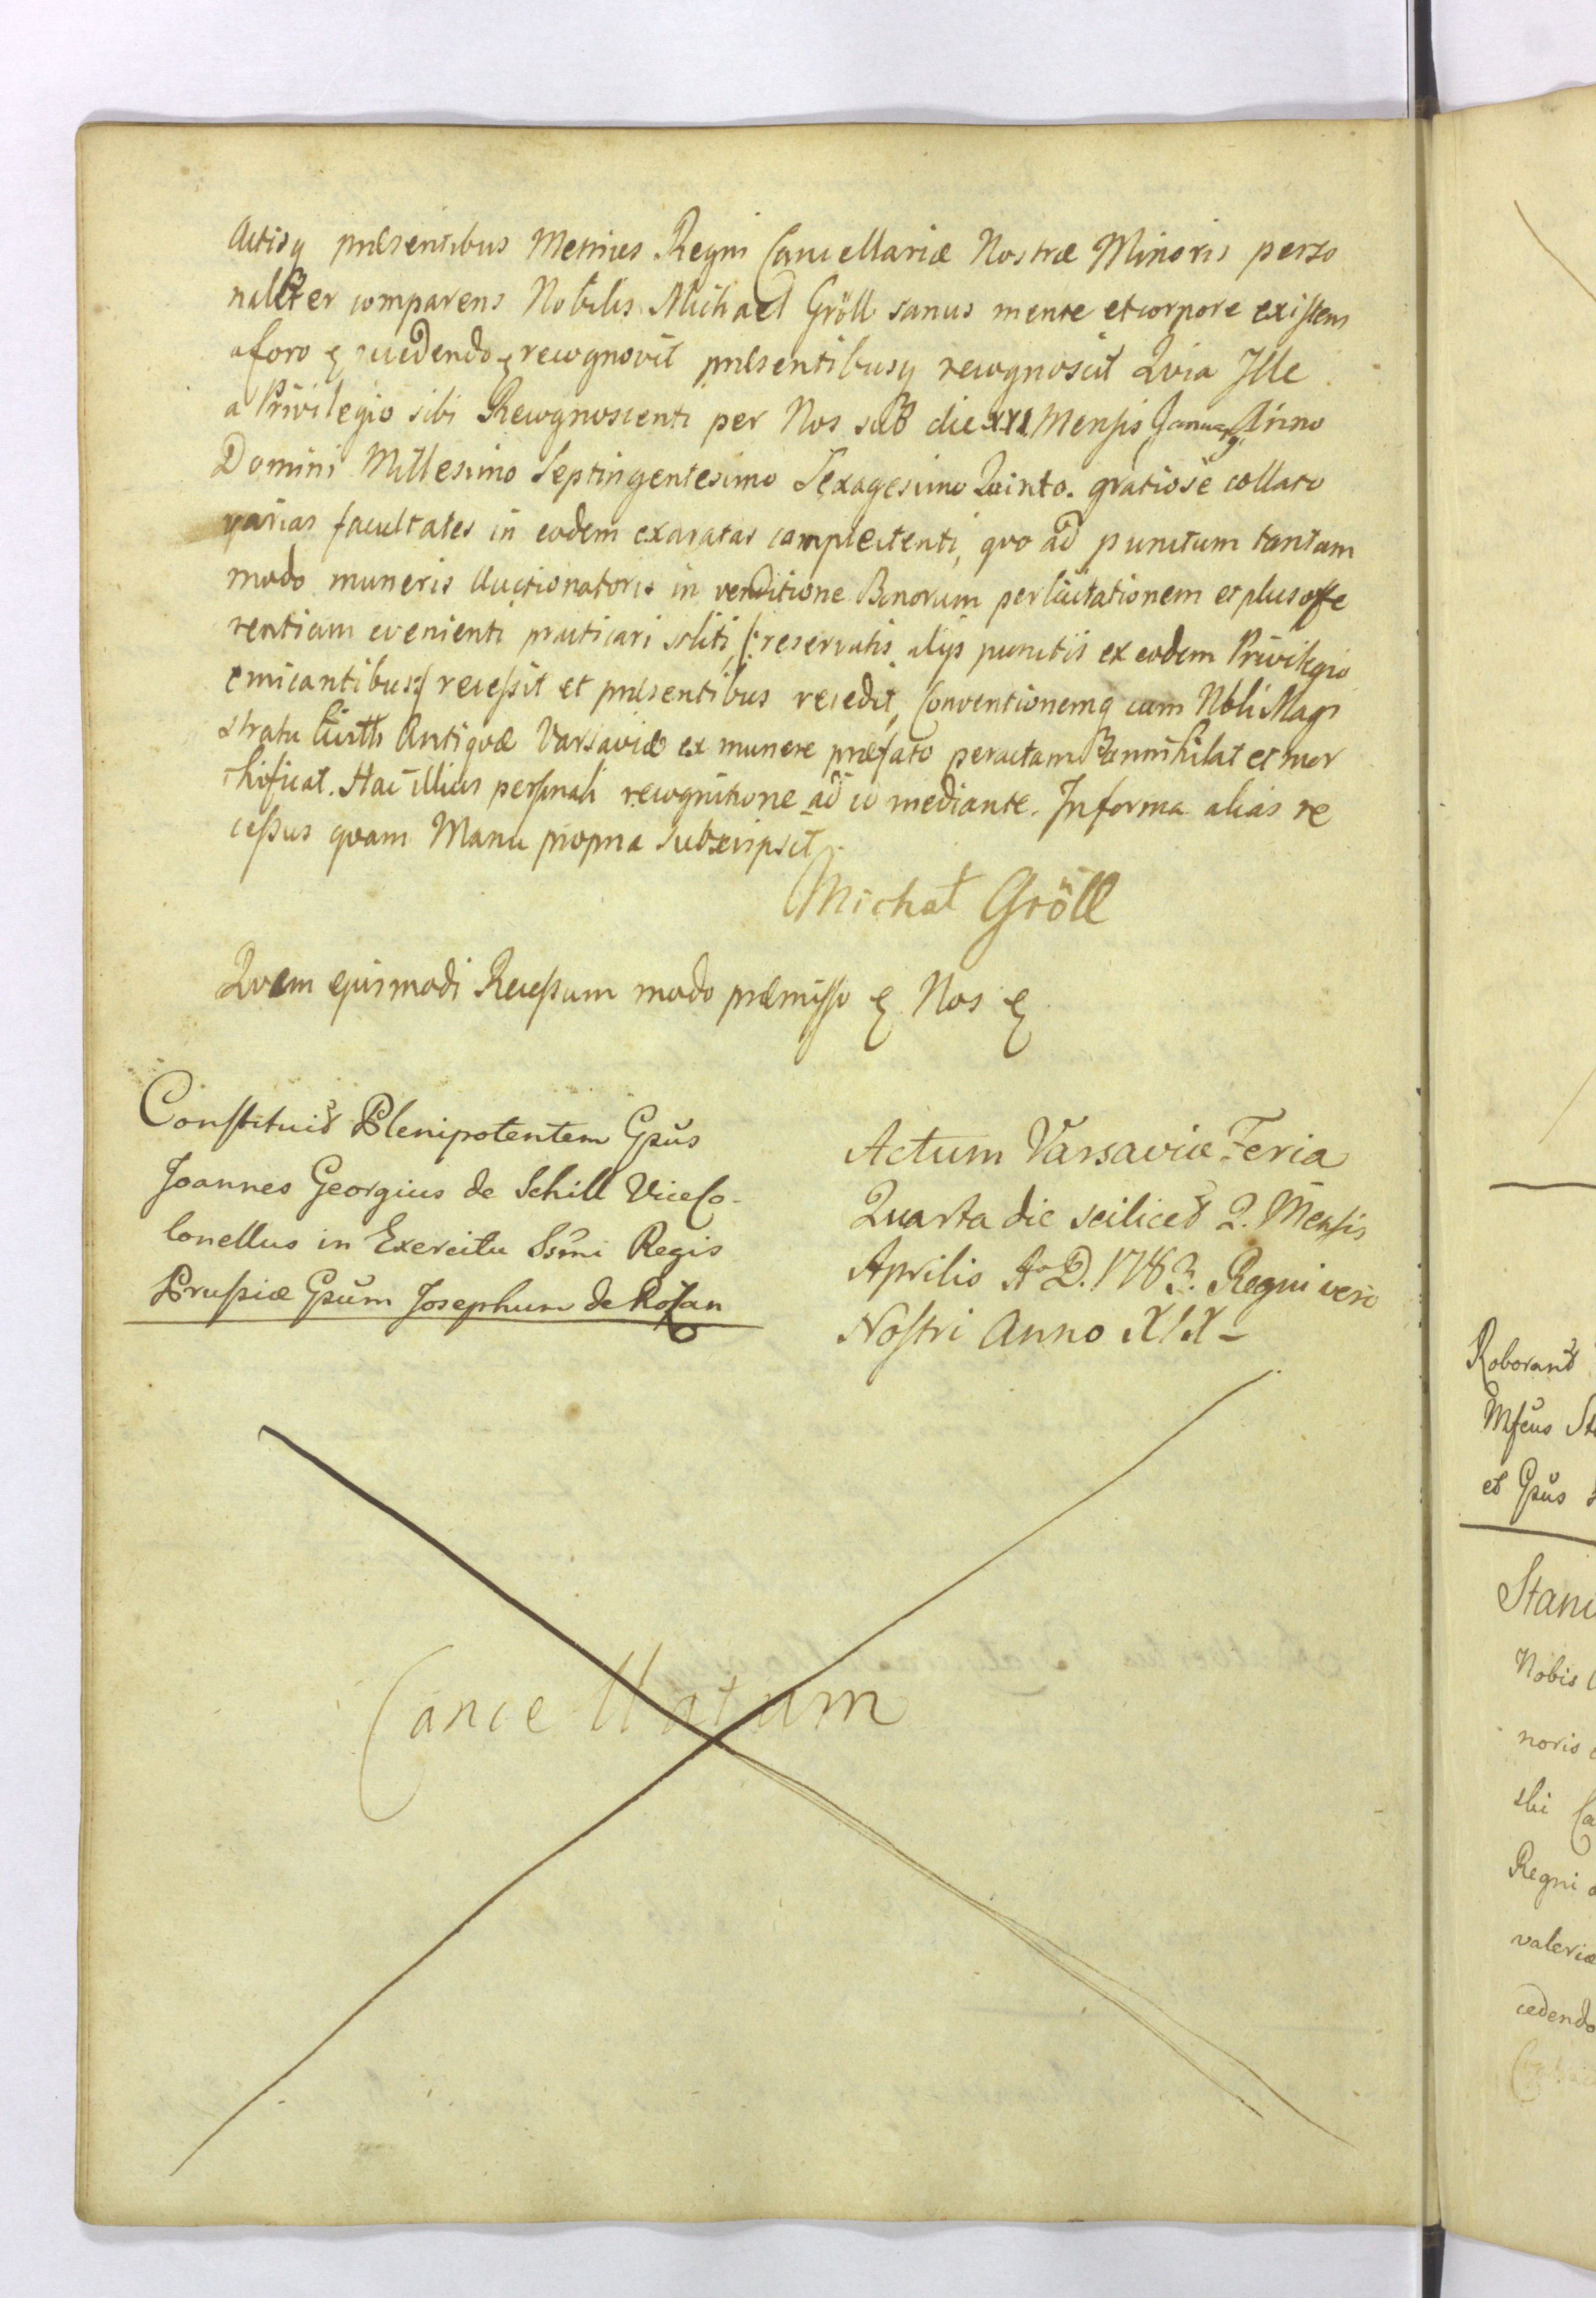 Actisq præsentibus Metrices Regni Cancellariæ Nostræ Minoris perso
naliter comparens Nobilis Michael Gröll sanus mente et corpore existens
a foro & recedendo & recognovit præsentibusq recognoscit Qvia Ille
a Privilegio sibi Recognoscenti per Nos sub die XXI Mensis Januarij Anno
Domini Millesimo Septingentesimo Sexagesimo Qvinto. gratiose collato
varias facultates in eodem exaratas complectenti, qvo ad punctum tantum
modo muneris Auctionatoris in venditione Bonorum per licitationem et plus offe
rentiam evenienti practicari soliti, /: reservatis alijs punctis ex eodem Privilegio
emicantibus :/ recessit et præsentibus recedit, Conventionemq cum Nbli Magi
stratu Civitt Antiqvæ Varsaviæ ex munere præfato peractam annihilat et mor
tificat. Hac illius personali recognitione ad id mediante. In forma alias re
cessus qvam Manu propria subscripsit.
Michał Gröll
Qvem ejusmodi Recessum modo præmisso & Nos &
Constituit Plenipotentem Gsus
Joannes Georgius de Schill ViceCo-
lonellus in Exercitu Ssmi Regis
Prussiæ Gsum Josephum de Rozan
Actum Varsaviæ Feria
Quarta die scilicet 2. Mensis
Aprilis Ao D. 1783. Regni vero
Nostri Anno XIX -
Cancellatum
Roborant
Mfcus
et Gsus
Nobis
noris
ski
Regni
valeriæ
cedendo